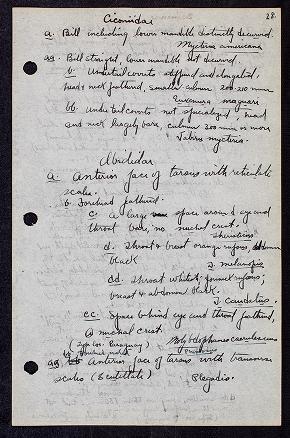 Ciconiidae
28.
a. Bill including lower mandible distinctly decurved.
Mycteria americana
aa. Bill straight, lower mandible not decurved.
b. Undertail coverts stiffened and elongated,
head & neck feathered, smaller culmen 200-210 mm
Euxenura maguari
bb. Undertail coverts not specialized, head
and neck largely bare, culmen 300 mm or more
Jabiru mycteria.
Ibididae
a. Anterior face of tarsus with reticulate
scales.
b. Forehead feathered.
c. A large space around eye and
throat bare, no nuchal crest.
Theristicus
d. Throat & breast orange rufous, abdomen
black
T. melanopis
dd. Throat white,
breast & abdomen black.
T. caudatus.
cc. Space behind eye and throat feathered,
a nuchal crest.
(Paraguay) Molybdophanes caerulescens
aa Anterior face of tarsus with transverse
scales (Scutellate) Plegadis.